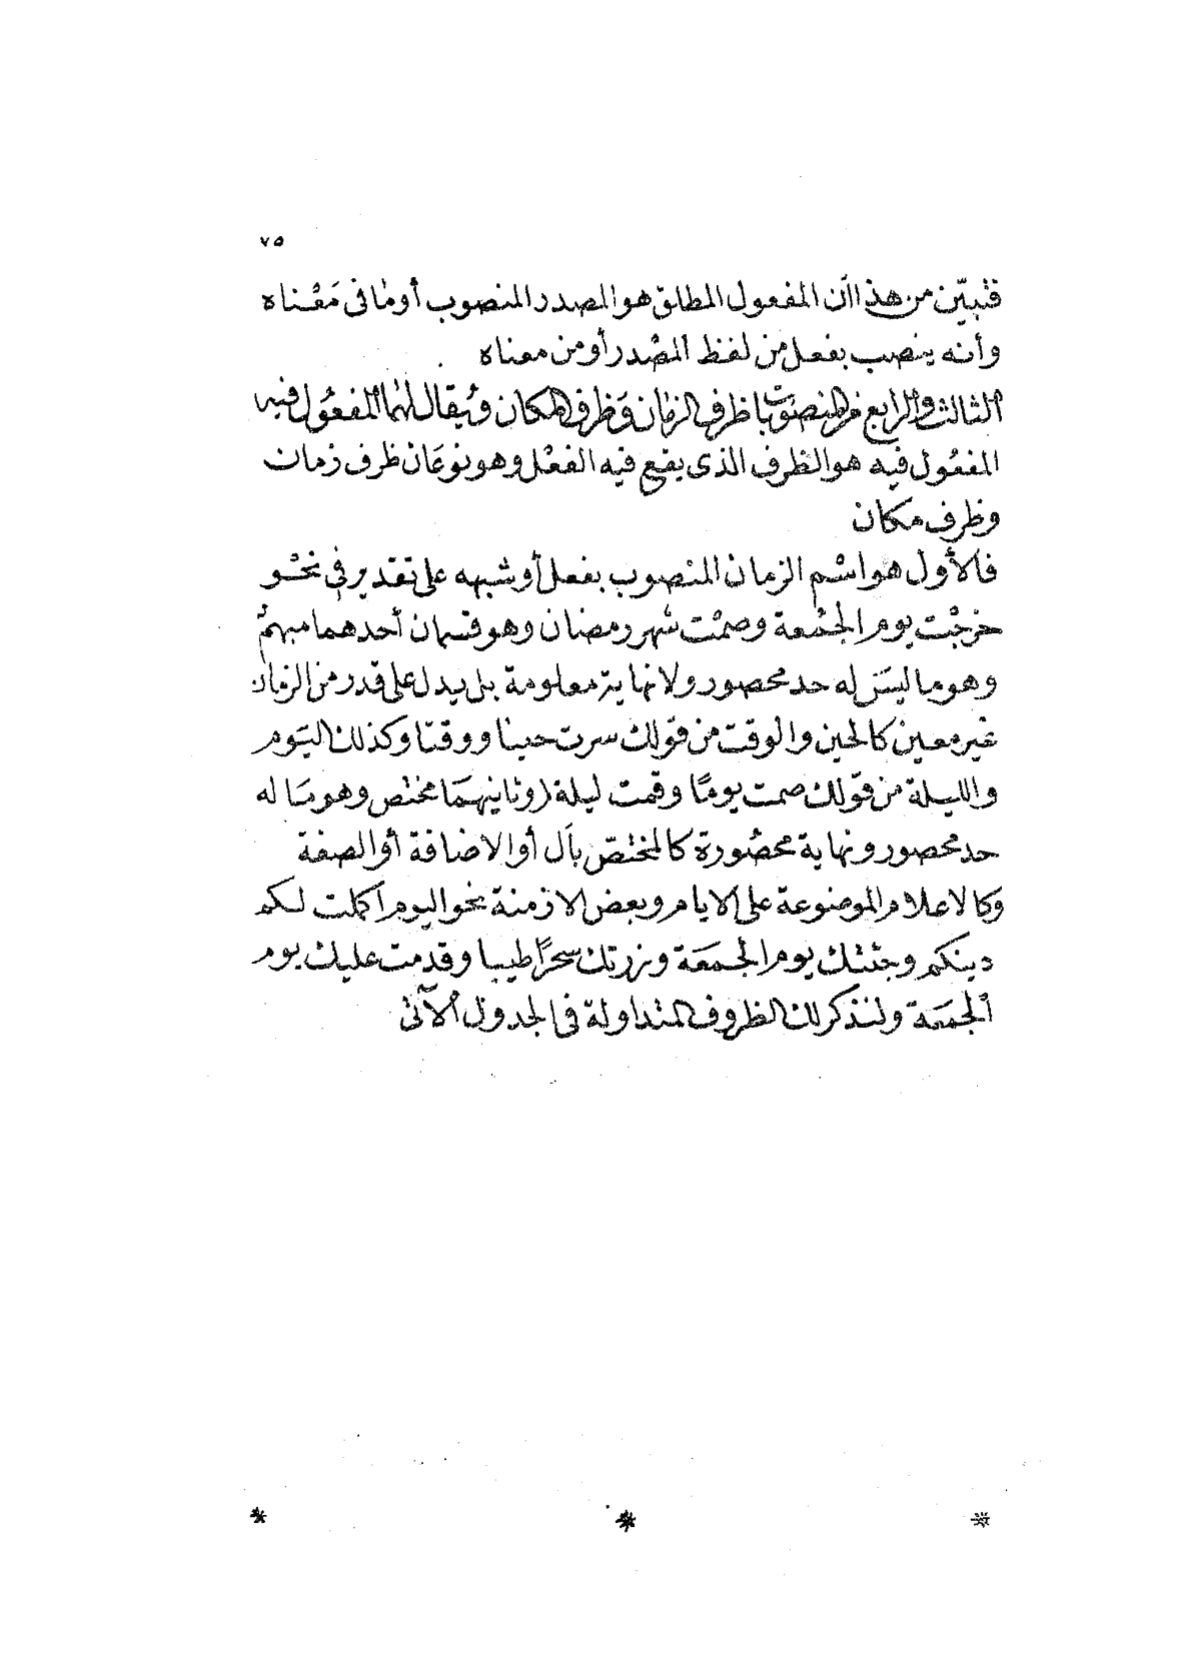 ٧٥
فتبيّن من هذا أن المفعول المطلق هو المصدر المنصوب أو ما فى معناه
وأنه ينصب بفعل من لفظ المصدر أو من معناه
الثالث والرابع من المنصوبات ظرف الزمان وظرف المكان ويقال لهما المفعول فيه
المفعول فيه هو الظرف الذى يقع فيه الفعل وهو نوعان ظرف زمان
وظرف مكان
فالأول هو اسم الزمان المنصوب بفعل أو شبهه على تقدير فى نحو
خرجت يوم الجمعة وصمت شهر رمضان وهو قسمان أحدهما مبهم
وهو ما ليس له حد محصور ولا نهاية معلومة بل يدل على قدر من الزمان
غير معين كالحين والوقت من قولك سرت حينا ووقتا وكذلك اليوم
والليلة من قولك صمت يومًا وقمت ليلة (وثانيهما مختص وهو ما له
حد محصور ونهاية محصورة كالمختص بأل أو الاضافة أو الصفة
وكالاعلام الموضوعة على الايام وبعض الازمنة نحو اليوم أكملت لكم
دينكم وجئتك يوم الجمعة وزرتك سحرًا طيبا وقدمت عليك يوم
الجمعة ولنذكر لك الظروف المتداولة فى الجدول الآتى
* * *